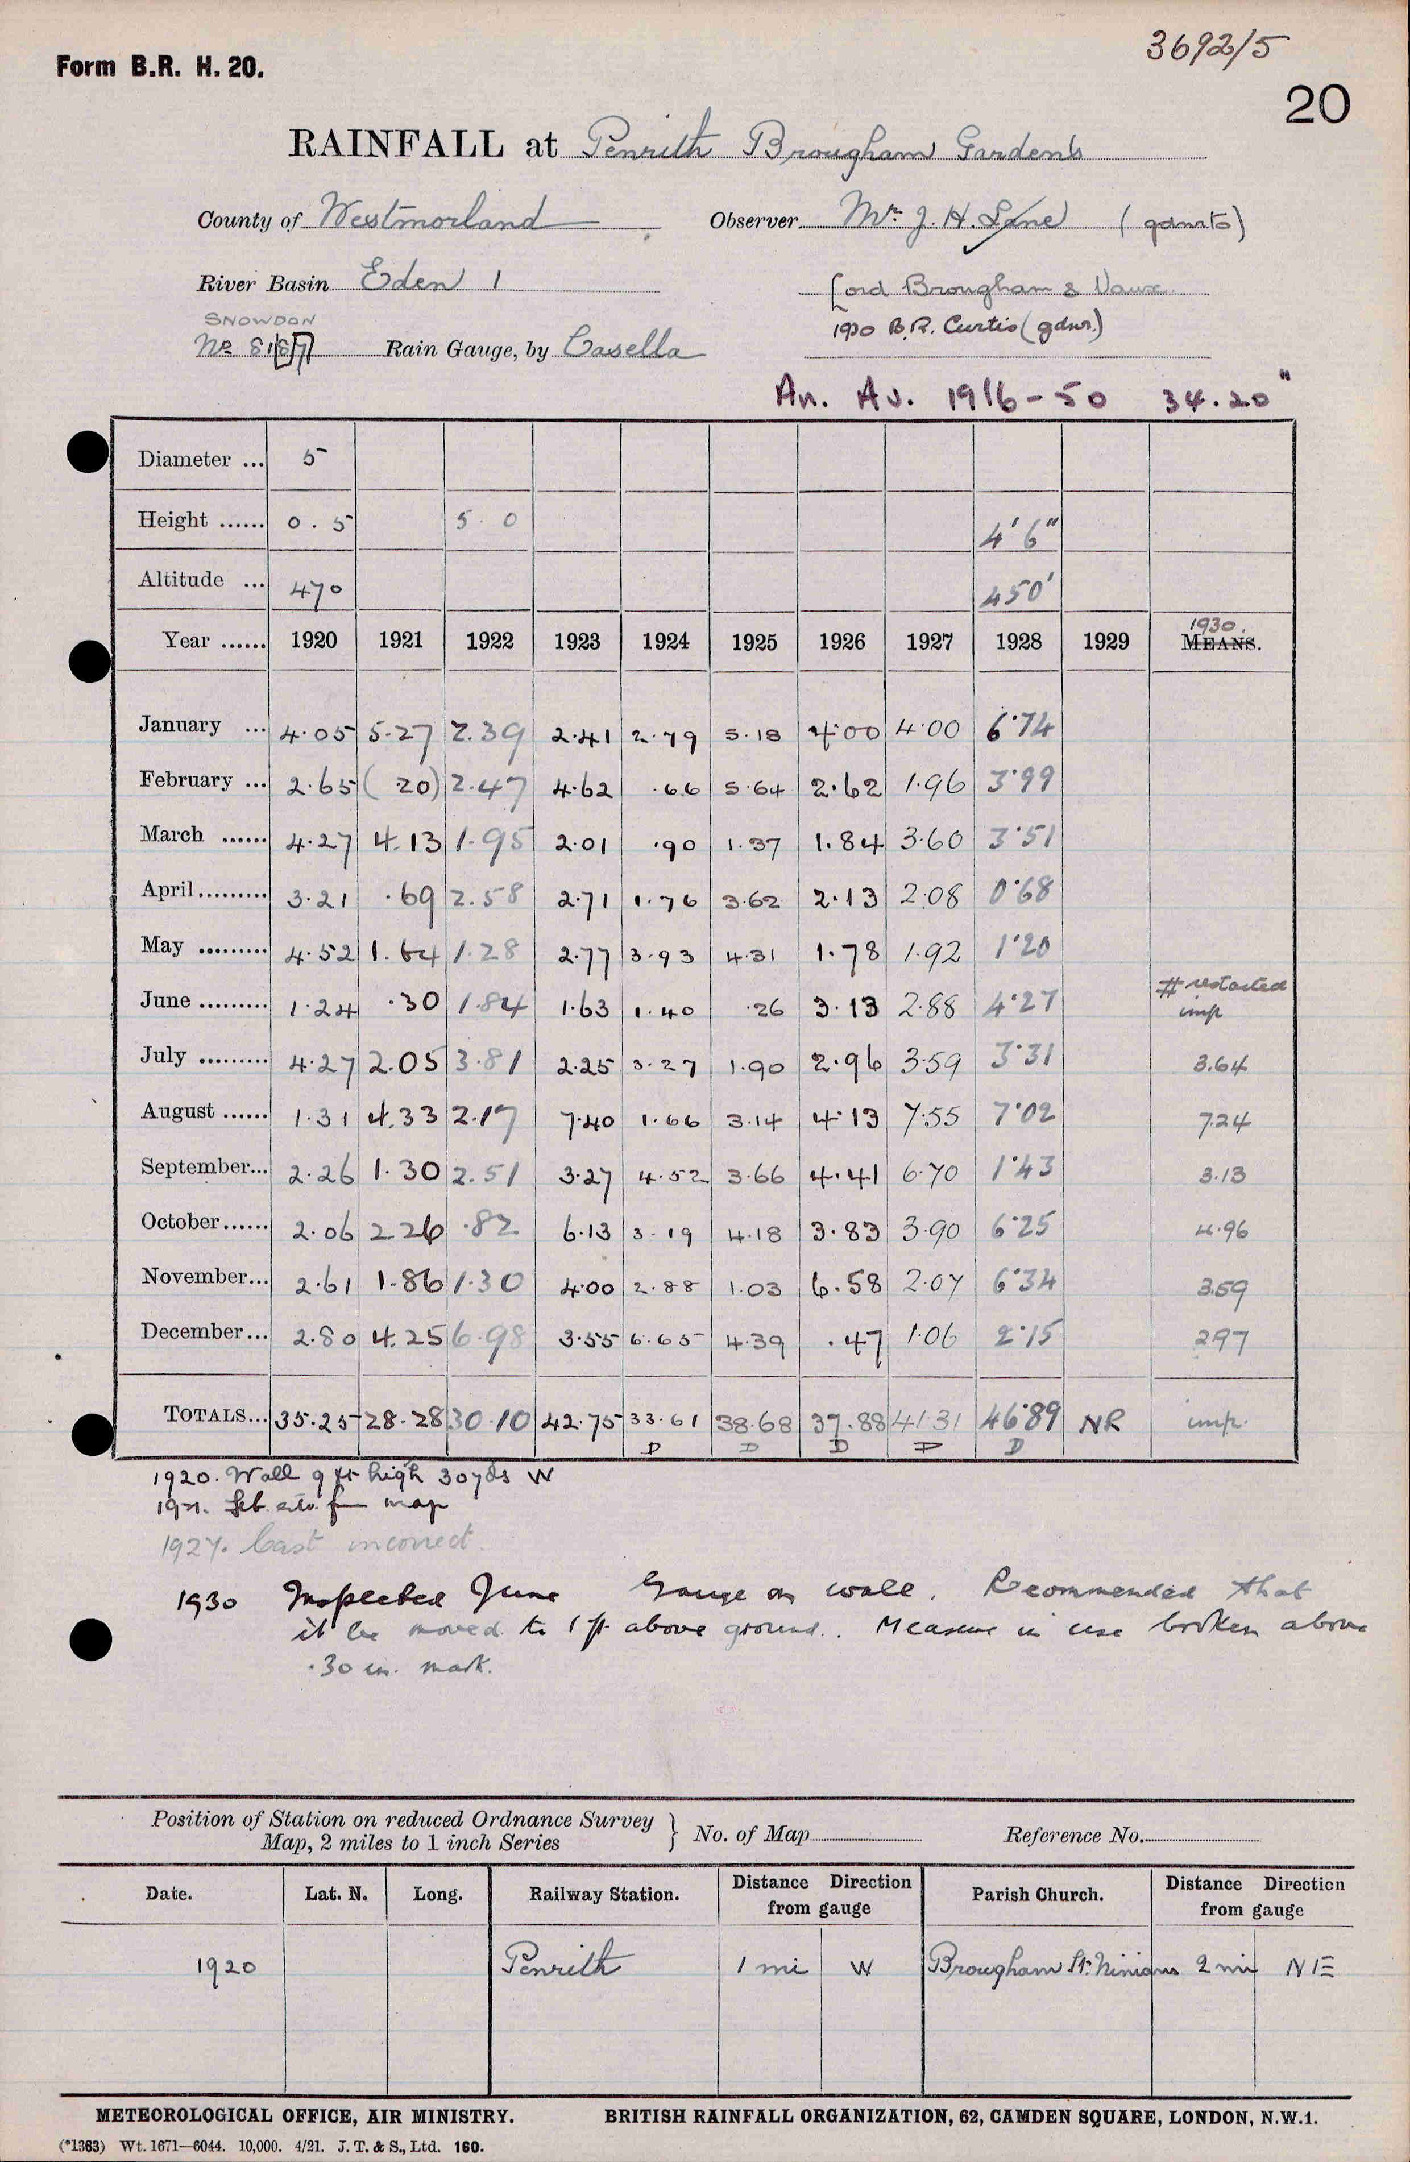 3692/5
Form B.R. H. 20.
20
RAINFALL at Penrith Brougham Gardens
County of Westmorland Observer Mr J. H. Lane (gdnrto)
River Basin Eden 1 Lord Brougham & Vaux
SNOWDON 1920 B.R. Curtis (gdnr.)
No 8187 Rain Gauge, by Casella
An. Av. 1916-50 34.20"
Diameter ... 5
Height ...... 0.5 5.0 4'6"
Altitude ... 470 450'
Year ...... 1920 1921 1922 1923 1924 1925 1926 1927 1928 1929 1930. MEANS.
January ... 4.05 5.27 2.39 2.41 2.79 5.18 4.00 4.00 6.74
February ... 2.65 (.20) 2.47 4.62 .66 5.64 2.62 1.96 3.99
March ...... 4.27 4.13 1.95 2.01 .90 1.37 1.84 3.60 3.51
April ......... 3.21 .69 2.58 2.71 1.76 3.62 2.13 2.08 0.68
May ......... 4.52 1.64 1.28 2.77 3.93 4.31 1.78 1.92 1.20
June ......... 1.24 .30 1.84 1.63 1.40 .26 3.13 2.88 4.27 # restarted imp
July ......... 4.27 2.05 3.81 2.25 3.27 1.90 2.96 3.59 3.31 3.64
August ...... 1.31 4.33 2.17 7.40 1.66 3.14 4.13 7.55 7.02 7.24
September... 2.26 1.30 2.51 3.27 4.52 3.66 4.41 6.70 1.43 3.13
October...... 2.06 2.26 .82 6.13 3.19 4.18 3.83 3.90 6.25 4.96
November... 2.61 1.86 1.30 4.00 2.88 1.03 6.58 2.07 6.34 3.59
December... 2.80 4.25 6.98 3.55 6.65 4.39 .47 1.06 2.15 2.97
TOTALS... 35.25 28.28 30.10 42.75 33.61 38.68 37.88 41.31 46.89 NR imp.
D D D D D
1920. Wall 9 ft high 30 yds W
1921. Feb. esto. fm map
1927. Cast incorrect.
1930 Inspected June Gauge on wall. Recommended that
it be moved to 1 ft above ground. Measure in use broken above
.30 in. mark.
Position of Station on reduced Ordnance Survey Map, 2 miles to 1 inch Series } No. of Map Reference No.
Date. Lat. N. Long. Railway Station. Distance from gauge Direction Parish Church. Distance from gauge Direction
1920 Penrith 1 mi W Brougham St. Ninians 2 mi NE
METEOROLOGICAL OFFICE, AIR MINISTRY. BRITISH RAINFALL ORGANIZATION, 62, CAMDEN SQUARE, LONDON, N.W.1.
(*1363) Wt. 1671—6044. 10,000. 4/21. J. T. & S., Ltd. 160.